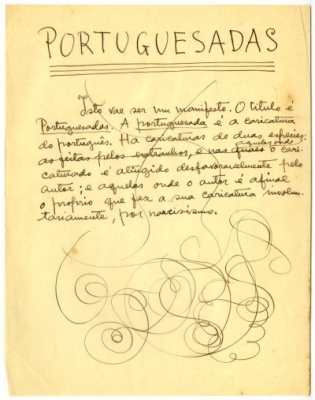 PORTUGUESADAS
Isto vae ser um manifesto. O titulo é
Portuguesadas. A portuguesada é a caricatura
do português. Há caricaturas de duas especies:
aquelas onde
as feitas pelos extranhos, e nas quaes o cari-
caturado é atingido desfavoravelmente pelo
autor; e aquelas onde o autor é afinal
o proprio que fez a sua caricatura involun-
tariamente, por narcisismo.